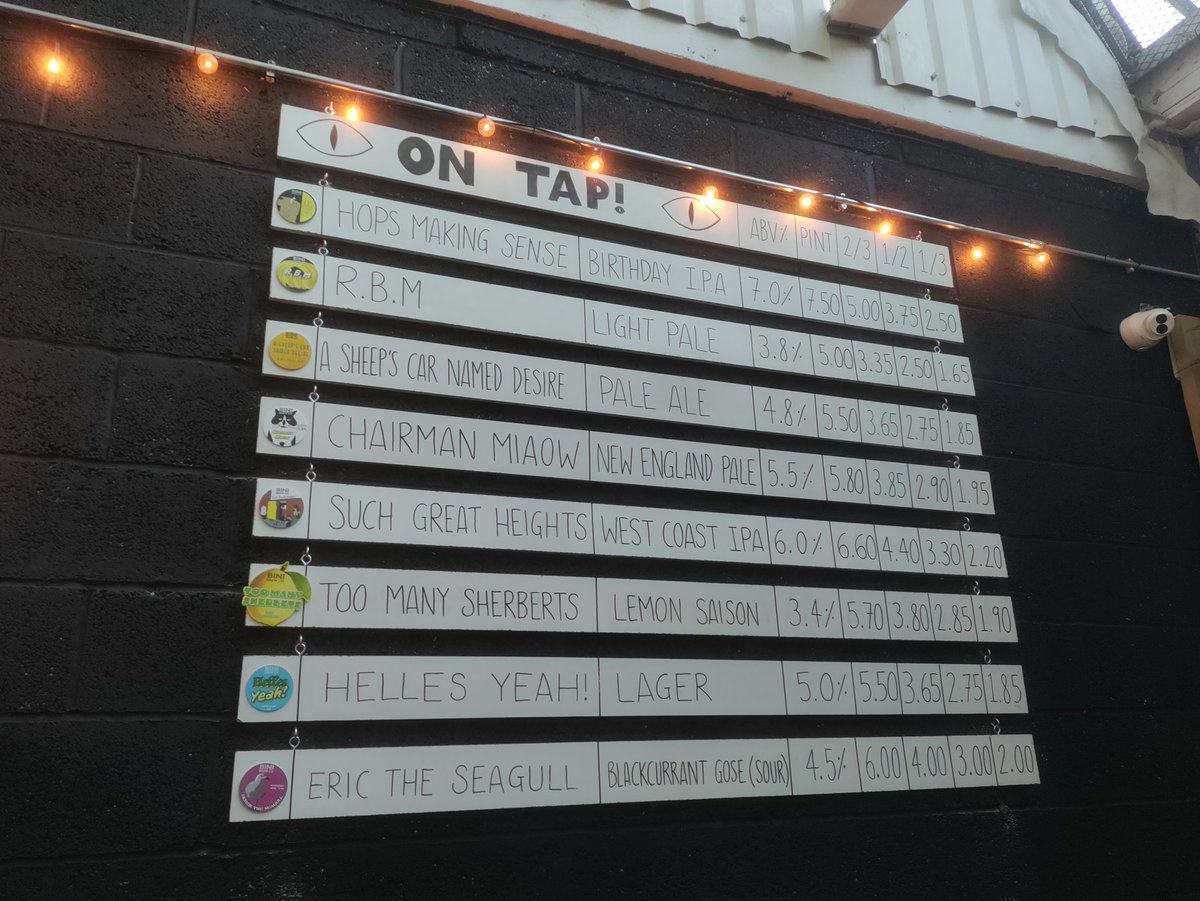 ON TAP! ABV% PINT 2/3 1/2 1/3
HOPS MAKING SENSE BIRTHDAY IPA 7.0% 7.50 5.00 3.75 2.50
R.B.M R.B.M LIGHT PALE 3.8% 5.00 3.35 2.50 1.65
A SHEEP'S CAR NAMED DESIRE PALE ALE 4.8% 5.50 3.65 2.75 1.85
CHAIRMAN MIAOW NEW ENGLAND PALE 5.5% 5.80 3.85 2.90 1.95
BINI SUCH GREAT HEIGHTS WEST COAST IPA 6.0% 6.60 4.40 3.30 2.20
BINI
TOO MANY SHERBERTS TOO MANY SHERBERTS LEMON SAISON 3.4% 5.70 3.80 2.85 1.90
Helles Yeah! HELLES YEAH! LAGER 5.0% 5.50 3.65 2.75 1.85
BINI ERIC THE SEAGULL BLACKCURRANT GOSE (SOUR) 4.5% 6.00 4.00 3.00 2.00